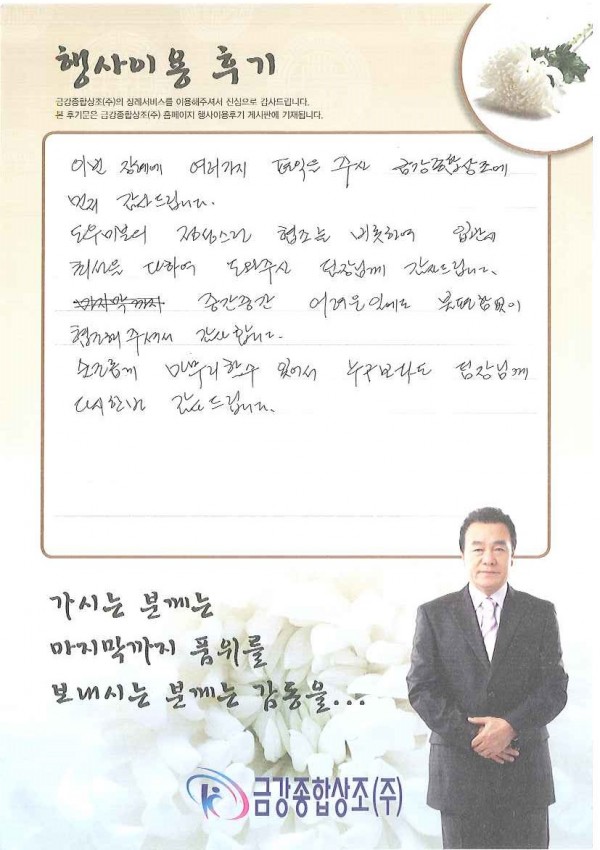 행사이용 후기
금강종합상조(주)의 장례서비스를 이용해주셔서 진심으로 감사드립니다.
본 후기문은 금강종합상조(주) 홈페이지 행사이용후기 게시판에 기재됩니다.
이번 장례에 여러가지 편익을 주신 금강종합상조에
먼저 감사드립니다.
도우미분의 정성스런 협조를 비롯하여 입관시
최선을 다하여 도와주신 팀장님께 감사드립니다.
마지막까지 중간중간 어려운일에도 불편함없이
협조해주셔서 감사합니다.
소중하게 마무리할수 있어서 누구보다도 팀장님께
다시한번 감사드립니다.
가시는 분께는
마지막까지 품위를
보내시는 분께는 감동을...
금강종합상조(주)